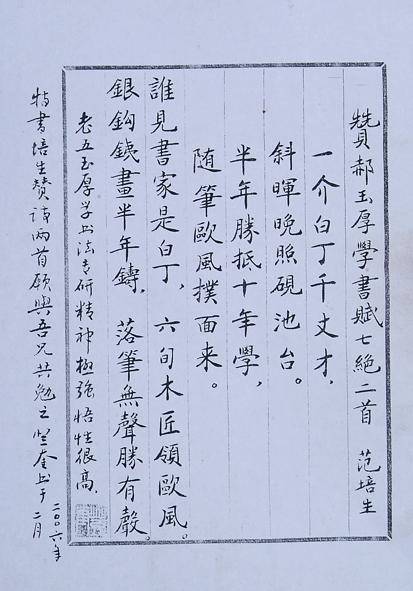 贊郝玉厚學書賦七絕二首 范培生
一介白丁千丈才,
斜暉晚照硯池台。
半年勝抵十年學,
随筆歐風撲面来。
誰見書家是白丁, 六旬木匠領歐風。
銀鈎鐵畫半年鑄, 落筆無聲勝有聲。
老五玉厚学书法专研精神極強悟性很高.
特書培生赞诗两首愿與吾兄共勉之 奎书于
二〇〇六年
二月